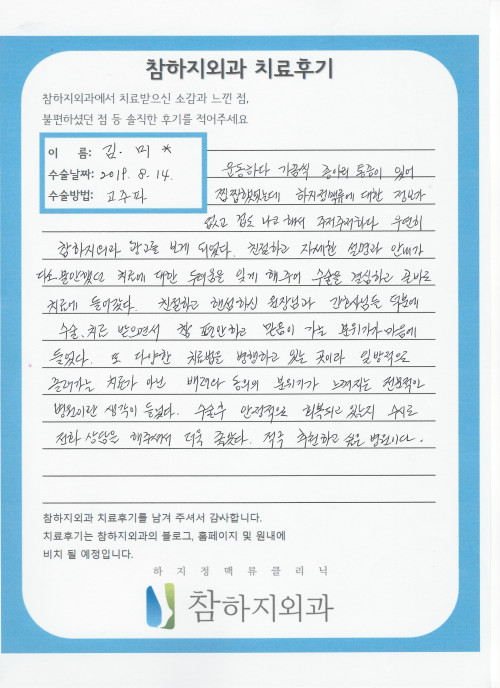 참하지외과 치료후기
참하지외과에서 치료받으신 소감과 느낀 점,
불편하셨던 점 등 솔직한 후기를 적어주세요
이 름: 김. 미 *
수술날짜: 2018. 8. 14.
수술방법: 고주파
운동하다 가끔씩 종아리 통증이 있어
찝찝했었는데 하지정맥류에 대한 정보가
없고 겁도 나고 해서 주저주저하다 우연히
참하지외과 광고를 보게 되었다. 친절하고 자세한 설명과 안내가
다소 불안했던 치료에 대한 두려움을 잊게 해주어 수술을 결심하고 곧바로
치료에 들어갔다. 친절하고 핸섬하신 원장님과 간호사님들 덕분에
수술, 치료 받으면서 참 편안하고 믿음이 가는 분위기가 마음에
들었다. 또 다양한 치료법을 병행하고 있는 곳이라 일방적으로
흘러가는 치료가 아닌 배려와 동의의 분위기가 느껴지는 전문적인
병원이란 생각이 들었다. 수술후 안정적으로 회복되고 있는지 수시로
전화 상담을 해주셔서 더욱 좋았다. 적극 추천하고 싶은 병원이다.
참하지외과 치료후기를 남겨 주셔서 감사합니다.
치료후기는 참하지외과의 블로그, 홈페이지 및 원내에
비치 될 예정입니다.
하 지 정 맥 류 클 리 닉
참하지외과